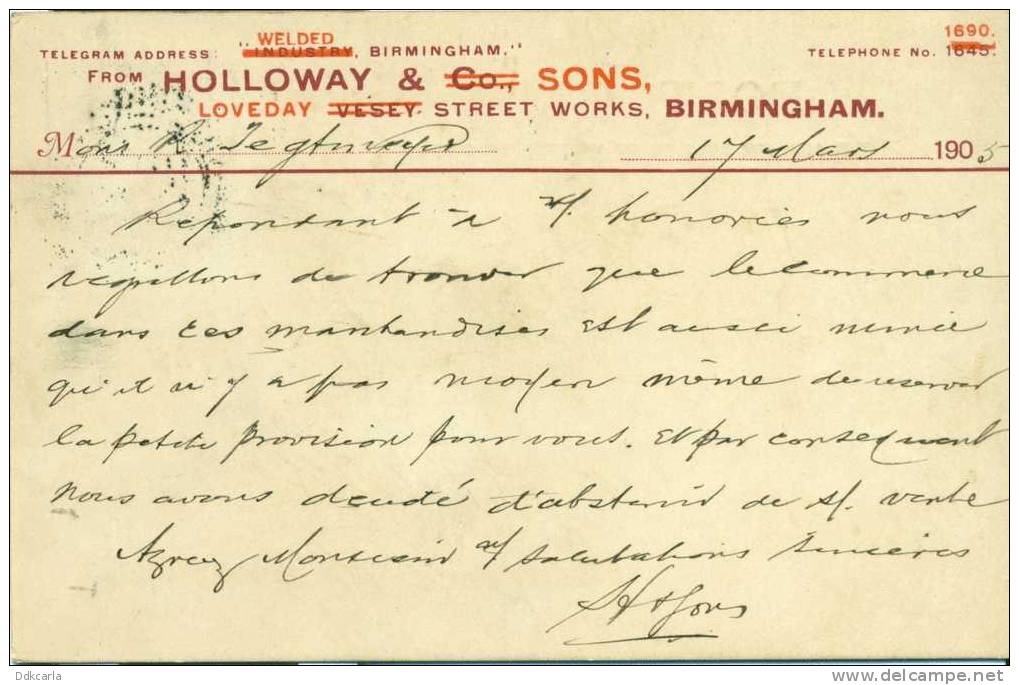 WELDED 1690.
TELEGRAM ADDRESS: "INDUSTRY, BIRMINGHAM." TELEPHONE No. 1645.
FROM HOLLOWAY & Co., SONS,
LOVEDAY VESEY STREET WORKS, BIRMINGHAM.
Mons 17 Mars 1905
Repondant à honories nous
de trouver que le commerce
dans ces marchandises est aussi
qu'il n'y a pas moyen même de reserver
la petite provision pour vous. Et par consequent
nous avons decidé d'abstenir de s/ vente
Agreez Monsieur n/ salutations sincères
H & Sons
Ddkcarla
delcampe.net